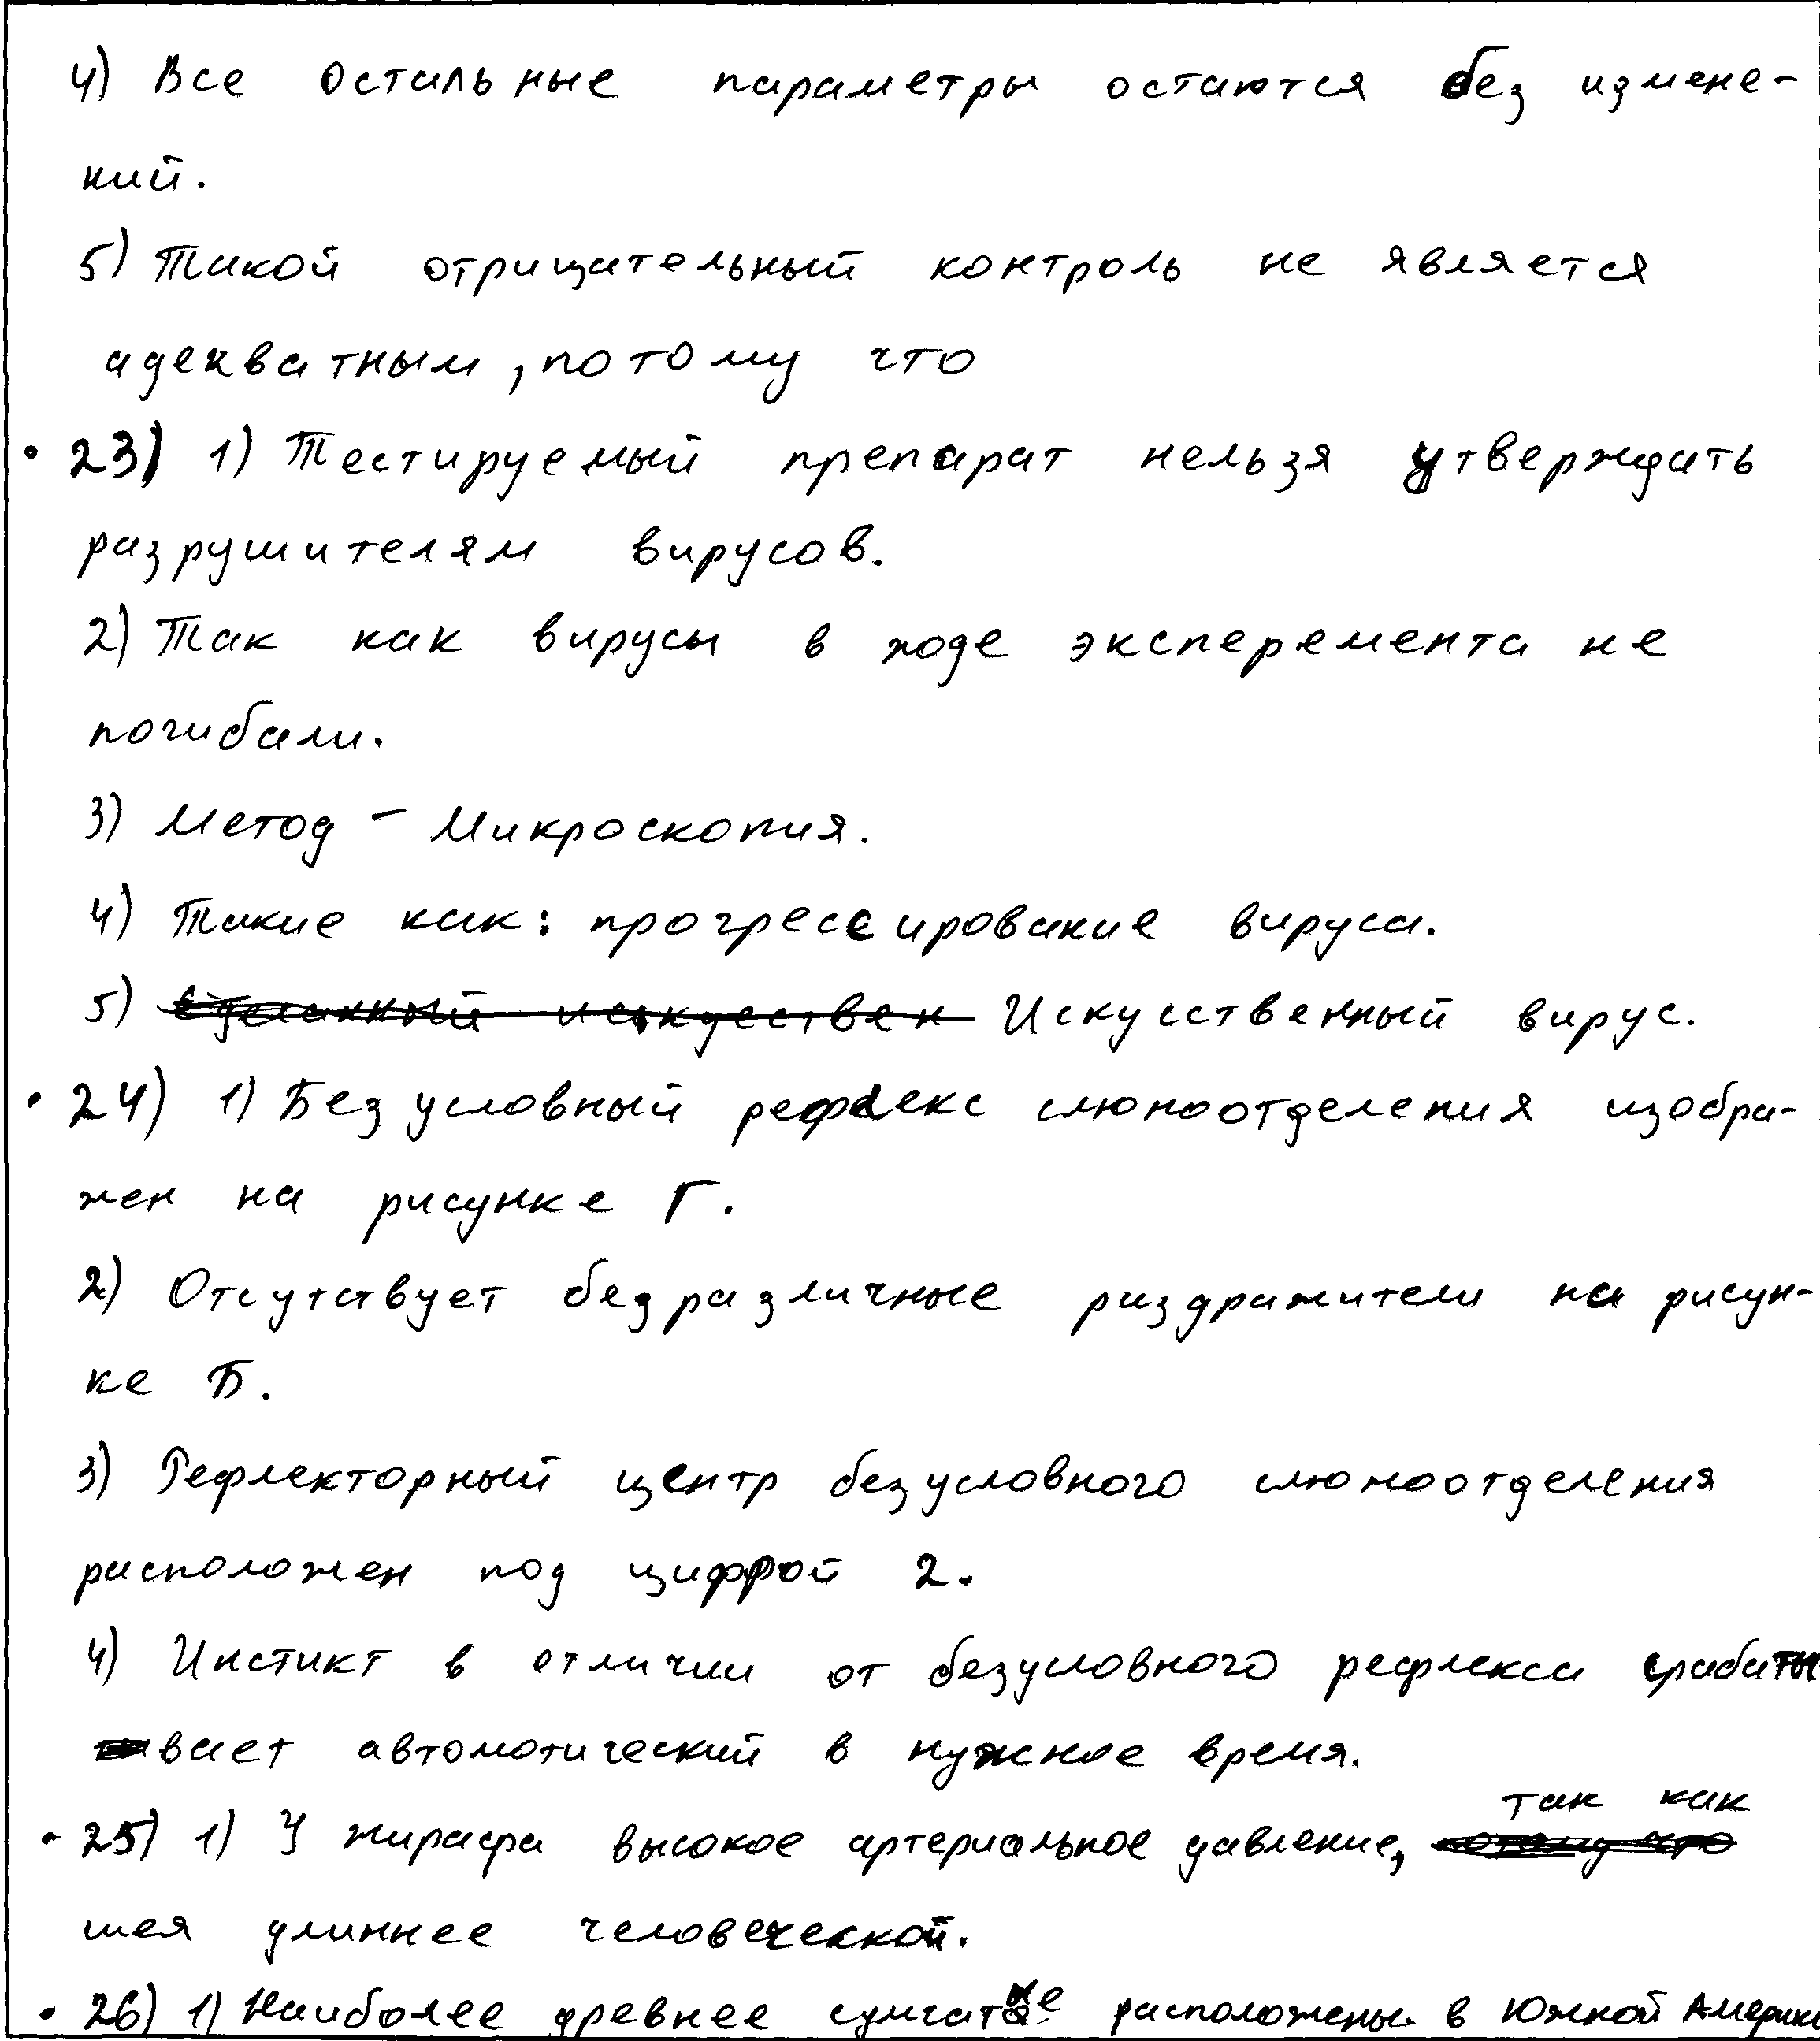 4) Все остальные параметры остаются без измене-
ний.
5) Такой отрицательный контроль не является
адекватным, потому что
• 23) 1) Тестируемый препарат нельзя утверждать
разрушителям вирусов.
2) Так как вирусы в ходе эксперемента не
погибали.
3) Метод - Микроскопия.
4) Такие как: прогрессирование вируса.
5) Искусственный вирус.
• 24) 1) Безусловный рефлекс слюноотделения изобра-
жен на рисунке Г.
2) Отсутствует безразличные раздражители на рисун-
ке Б.
3) Рефлекторный центр безусловного слюноотделения
расположен под цифрой 2.
4) Инстикт в отличии от безусловного рефлекса срабаты
вает автомотический в нужное время.
• 25) 1) У жирафа высокое артериальное давление, так как
шея длиннее человеческой.
• 26) 1) Наиболее древнее сумчатые расположены в Южной Америке